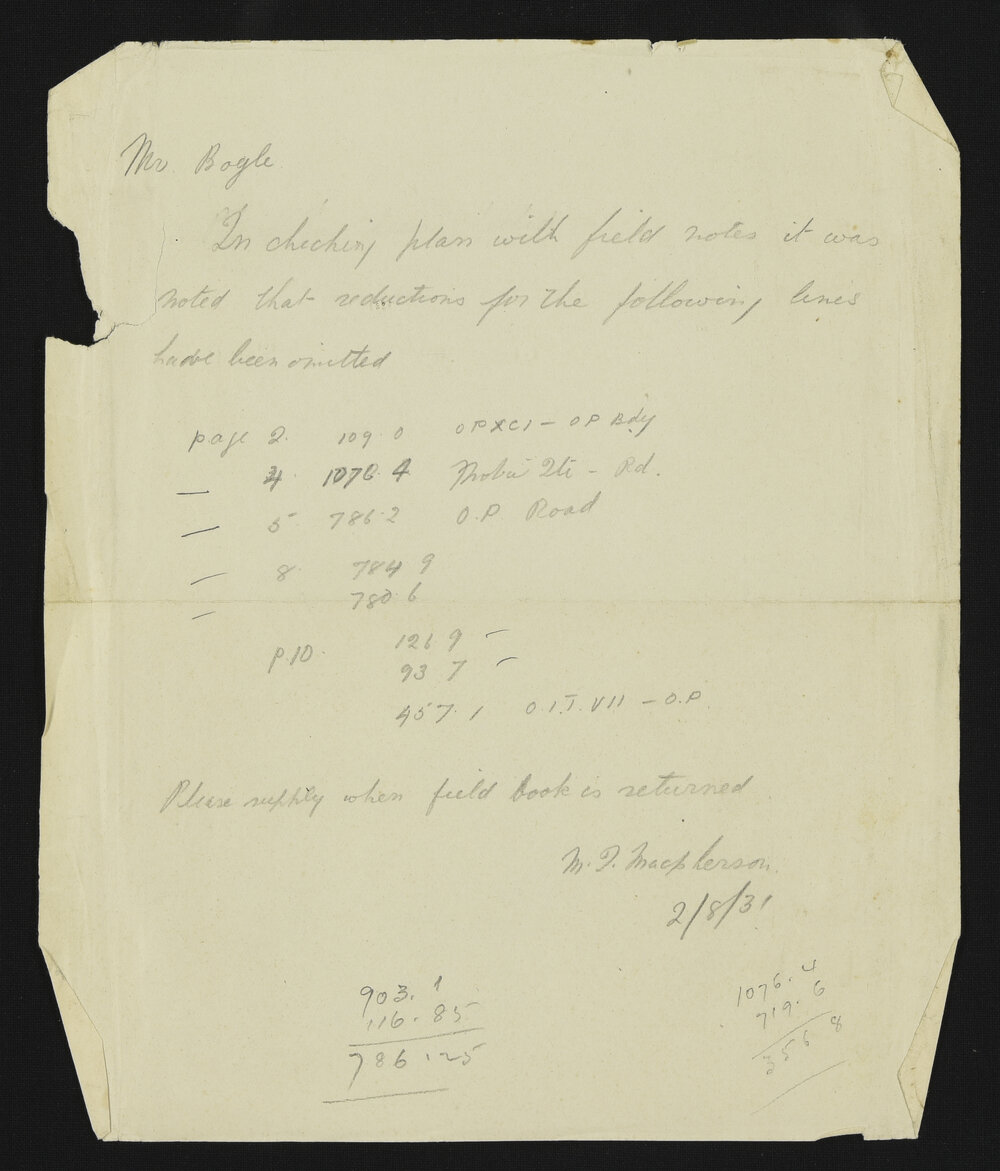 Mr. Bogle
In checking plan with field notes it was
noted that reductions for the following lines
have been omitted
page 2. 109.0 OPXCI - OP Bdy
— 4 1076.4 - Rd.
— 5 786.2 O.P Road
— 8. 784.9
— 780.6
P10. 126.9 —
93.7 —
457.1 O.I.T. VII - O.P.
Please supply when field book is returned
M. J. Macpherson
2/8/31
903.1
116.85
786.25
1076.4
719.6
356.8